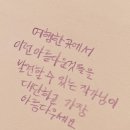 여행한 곳에서
이런 아름다운 것들을
발견할 수 있는 작가님이
대단했고 가장
아름다우세요